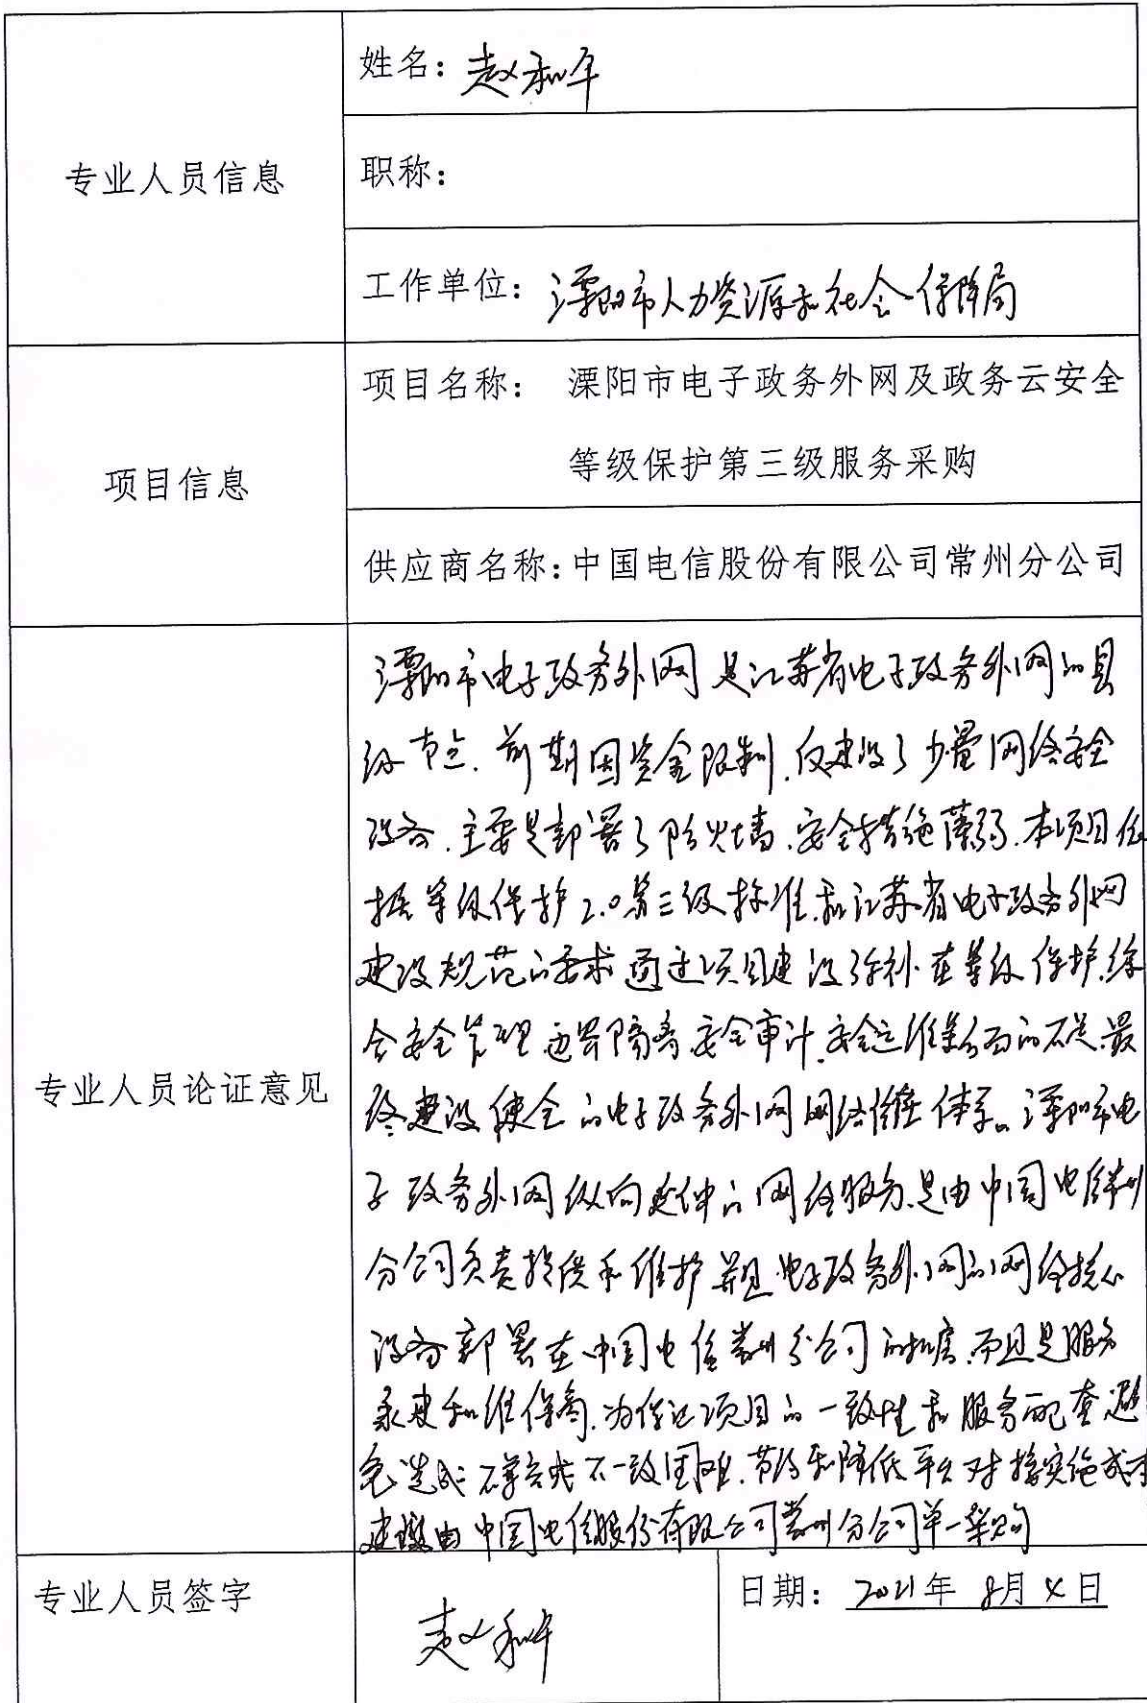 姓名：赵和平
专业人员信息
职称：
工作单位：溧阳市人力资源和社会保障局
项目名称： 溧阳市电子政务外网及政务云安全
等级保护第三级服务采购
项目信息
供应商名称：中国电信股份有限公司常州分公司
溧阳市电子政务外网是江苏省电子政务外网的县
级节点.前期因资金限制.仅建设了少量网络安全
设备.主要是部署了防火墙.安全措施薄弱.本项目依
据等级保护2.0第三级标准和江苏省电子政务外网
建设规范的要求通过项目建设弥补在等级保护.综
合安全管理 边界隔离 安全审计.安全运维等方面的不足.最
专业人员论证意见
终建设健全的电子政务外网网络体系。溧阳市电
子政务外网纵向延伸的网络服务.是由中国电信常州
分公司负责提供和维护 并且电子政务外网的网络核心
设备部署在中国电信常州分公司的机房.而且是服务
承建和维保商.为保证项目的一致性和服务配套避
免造成不一致困难.节约和降低平台对接实施成本
建议由中国电信股份有限公司常州分公司单一采购
专业人员签字
赵和平
日期：2021年 8月 4日